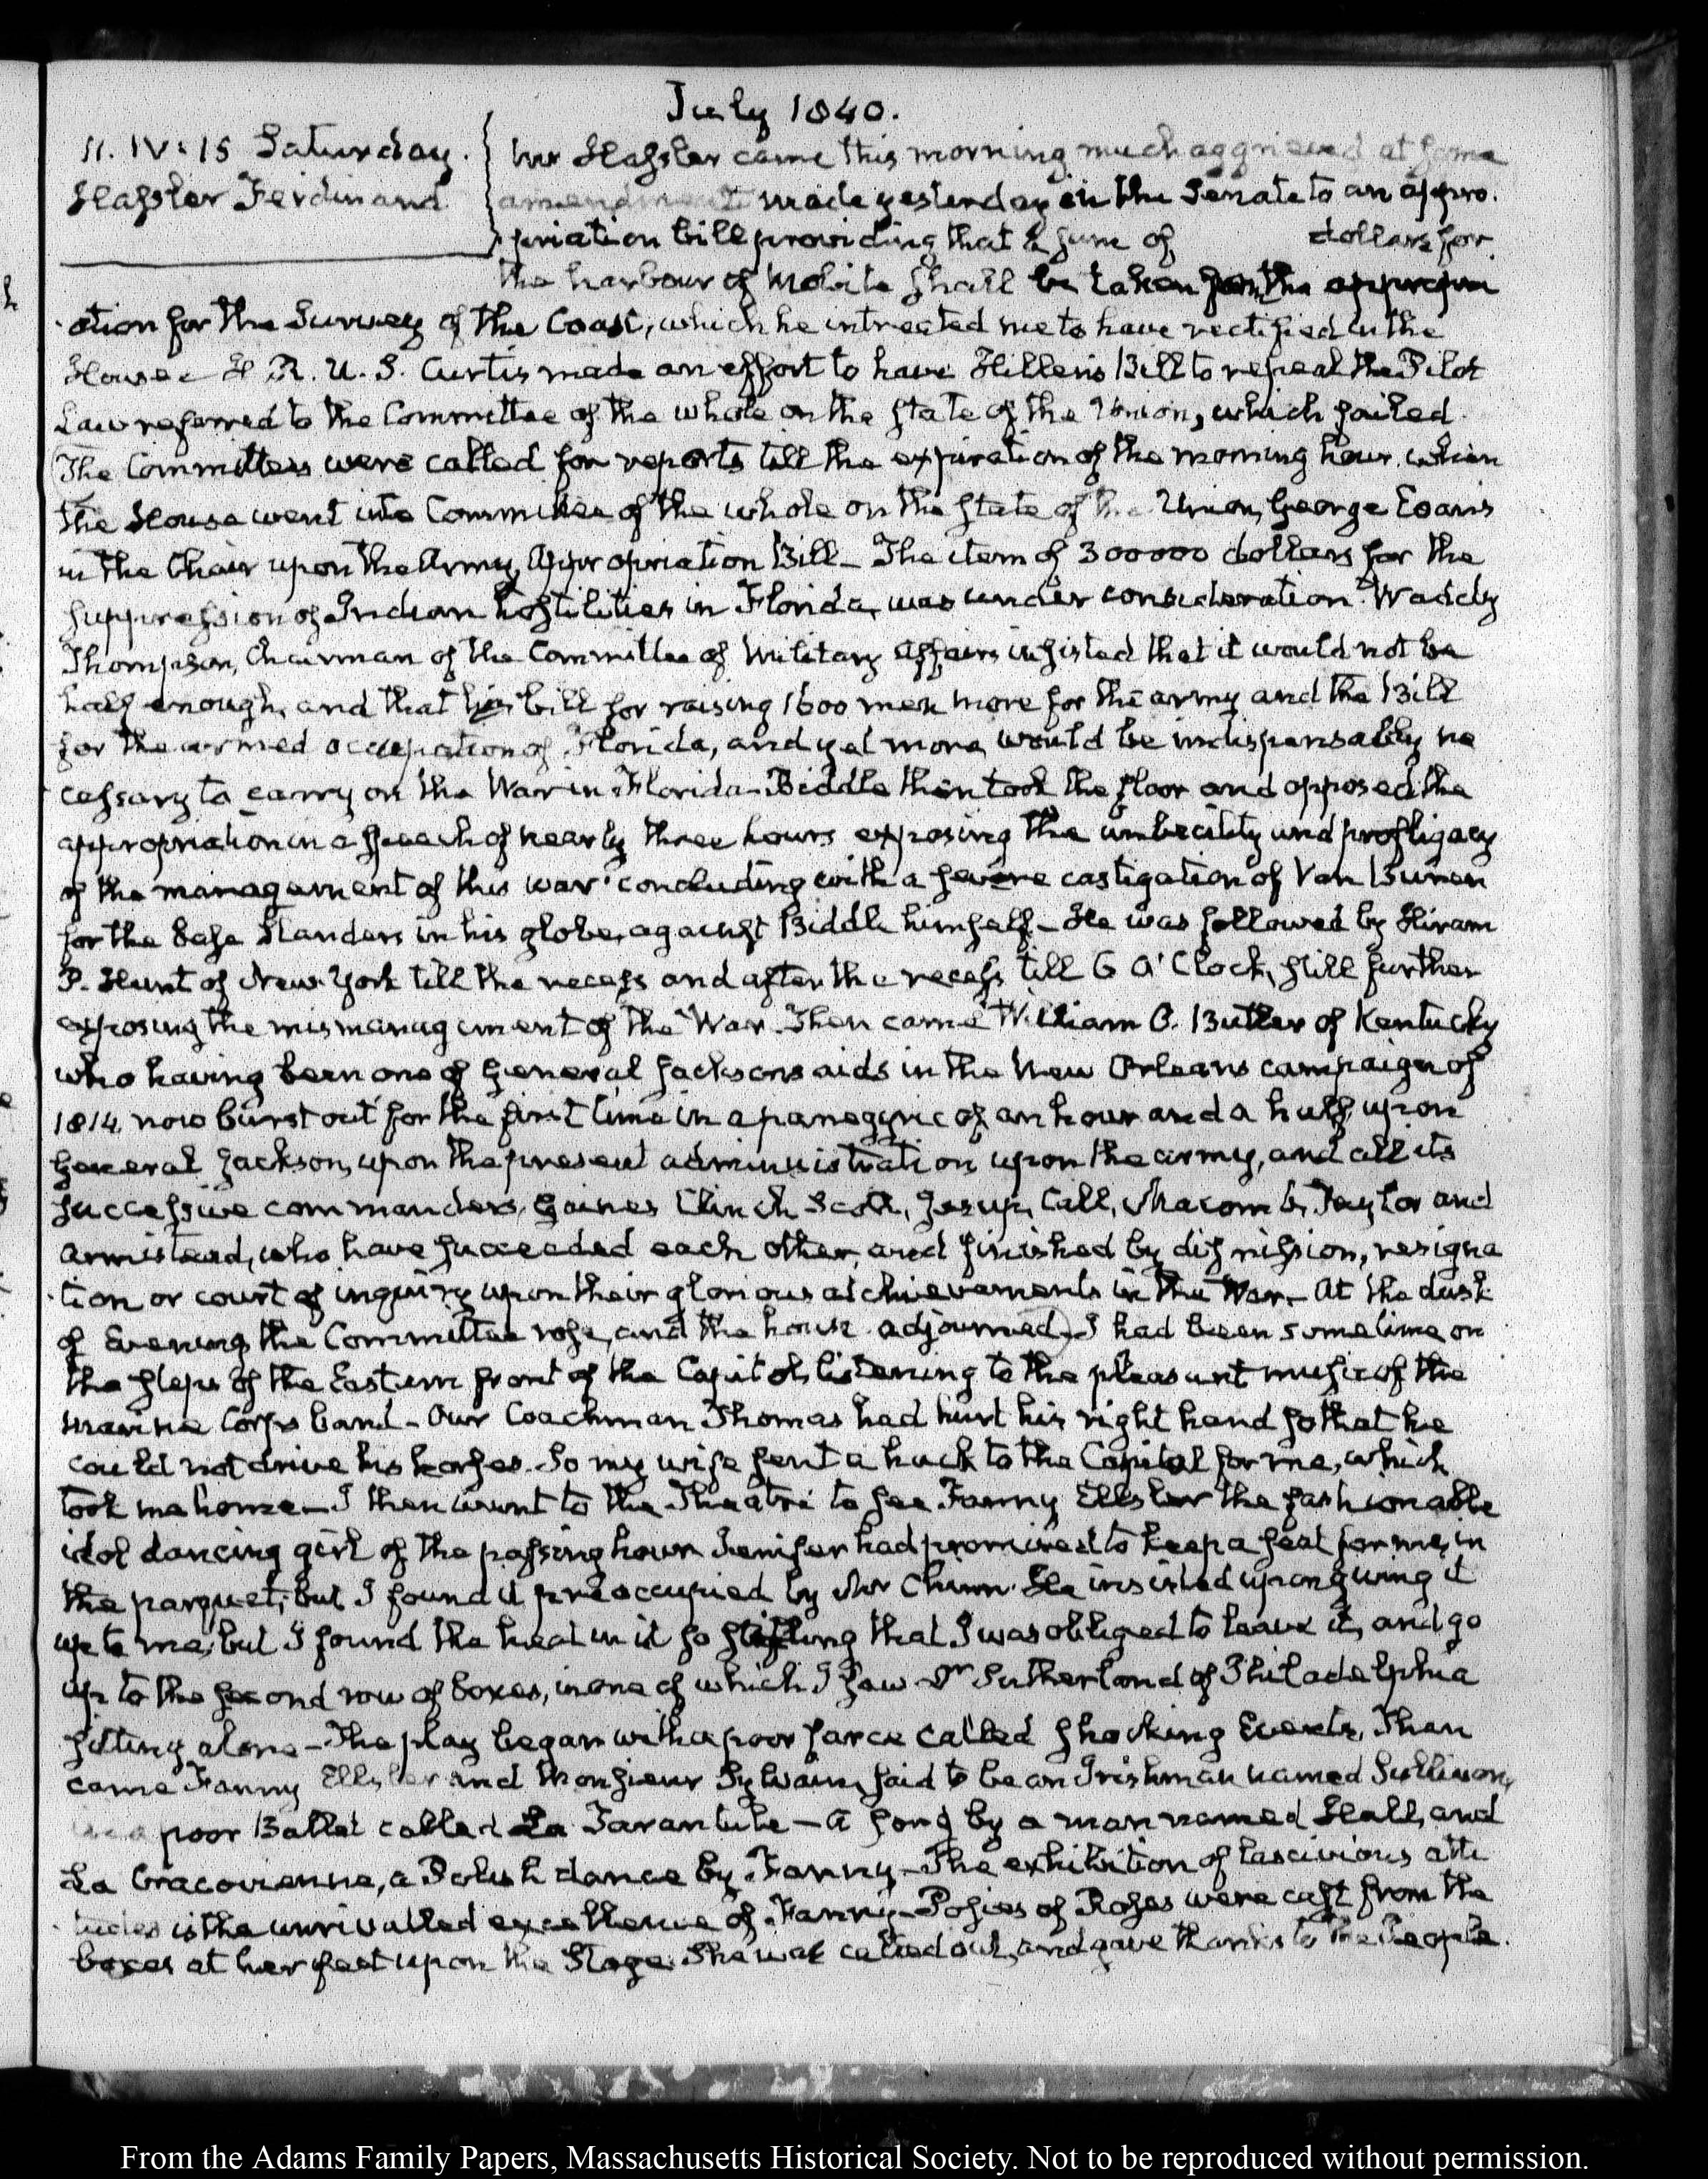 July 1840.
11. IV:15 Saturday.
Hassler Ferdinand
Mr Hassler came this morning much aggrieved at some
amendment made yesterday in the Senate to an appro.
priation bill providing that a sum of dollars for
the harbour of Mobile shall be taken from the appropri
ation for the Survey of the Coast, which he intreated me to have rectified in the
House. H. R. U. S. Curtis made an effort to have Hillen's Bill to repeal the Pilot
Law referred to the Committee of the whole on the state of the Union, which failed.
The Committees were called for reports till the expiration of the morning hour. when
the House went into Committee of the whole on the state of the Union, George Evans
in the Chair upon the Army Appropriation Bill— The item of 300000 dollars for the
suppression of Indian hostilities in Florida, was under consideration. Waddy
Thompson, Chairman of the Committee of Military Affairs insisted that it would not be
half enough, and that his bill for raising 1600 men more for the army and the Bill
for the armed occupation of Florida, and yet more would be indispensably ne
cessary to carry on the War in Florida— Biddle then took the floor and opposed the
appropriation in a speech of nearly three hours exposing the imbecility and profligacy
of the management of this war concluding with a severe castigation of Van Buren
for the base slanders in his globe, against Biddle himself— He was followed by Hiram
P. Hunt of New-York till the recess and after the recess till 6 O'Clock, still further
exposing the mismanagement of the War. Then came William O. Butler of Kentucky
who having been one of General Jacksons aids in the New Orleans campaign of
1814 now burst out for the first time in a panegyric of an hour and a half upon
General Jackson, upon the present administration upon the army, and all its
successive commanders, Gaines Clinch Scott, Jesup, Call, Macomb, Taylor and
Armistead, who have succeeded each other, and finished by dismission, resigna
tion or court of inquiry upon their glorious atchievements in the War— At the dusk
of Evening the Committee rose, and the house adjourned. I had been sometime on
the steps of the Eastern front of the Capitol, listening to the pleasant music of the
marine Corps band— Our Coachman Thomas had hurt his right hand so that he
could not drive his horses. So my wife sent a hack to the Capitol for me, which
took me home— I then went to the Theatre to see Fanny Ellsler the fashionable
idol dancing girl of the passing hour Jenifer had promised to keep a seat for me, in
the parquet; but I found it preoccupied by Mr Chinn. He insisted upon giving it
up to me; but I found the heat in it so stifling that I was obliged to leave it, and go
up to the second row of boxes, in one of which I saw Dr Sutherland of Philadelphia
sitting alone— The play began with a poor farce called Shocking Events, Then
came Fanny Ellsler and Monsieur Sylvain, said to be an Irishman named Sullivan,
in a poor Ballet called La Tarantule— A song by a man named Hall, and
La Cracovienne, a Polish dance by Fanny— The exhibition of lascivious atti
tudes is the unrivalled excellence of Fanny— Posies of Roses were cast from the
boxes at her feet upon the Stage. She was called out, and gave thanks to the People.
From the Adams Family Papers, Massachusetts Historical Society. Not to be reproduced without permission.